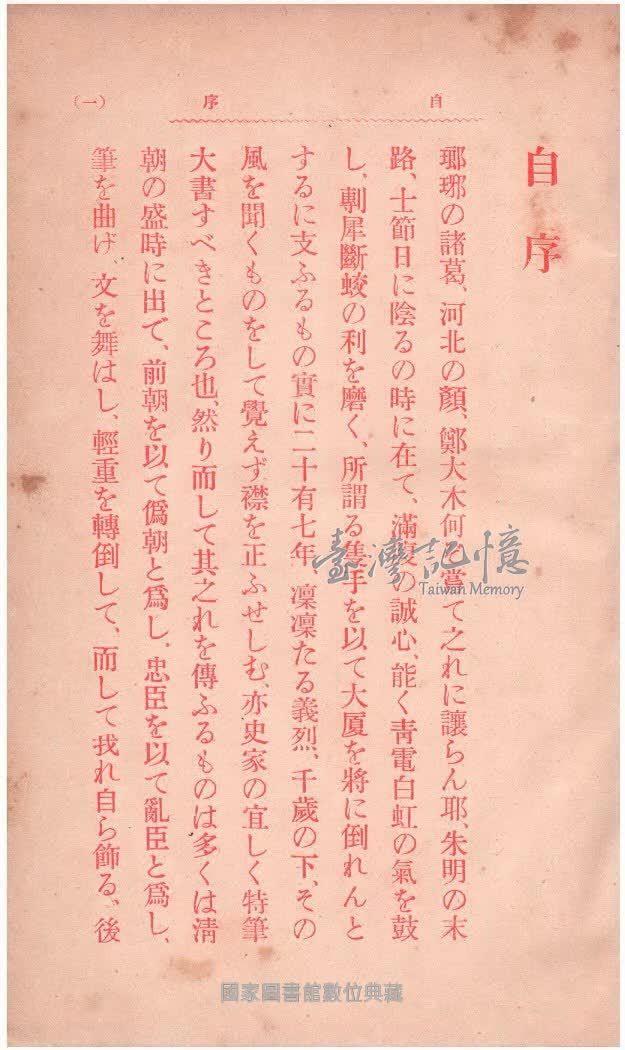 自序
(一)
自序
瑯琊の諸葛、河北の顏、鄭大木何ぞ嘗て之れに讓らん耶、朱明の末
路、士節日に陰るの時に在て、滿腹の誠心、能く靑電白虹の氣を鼓
し、剸犀斷蛟の利を磨く、所謂る隻手を以て大厦を將に倒れんと
するに支ふるもの實に二十有七年、凜凜たる義烈、千歲の下、その
風を聞くものをして覺えず襟を正ふせしむ、亦史家の宜しく特筆
大書すべきところ也、然り而して其之れを傳ふるものは多くは淸
朝の盛時に出で、前朝を以て僞朝と爲し、忠臣を以て亂臣と爲し、
筆を曲げ、文を舞はし、輕重を轉倒して、而して我れ自ら飾る、後
臺灣記憶
Taiwan Memory
國家圖書館數位典藏